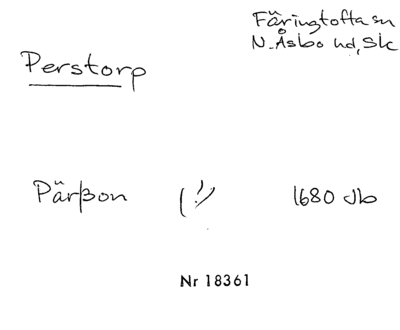 Färingtofta sn
N. Åsbo hd, Sk
Perstorp
Pärßon (!) 1680 Jb
Nr 18361